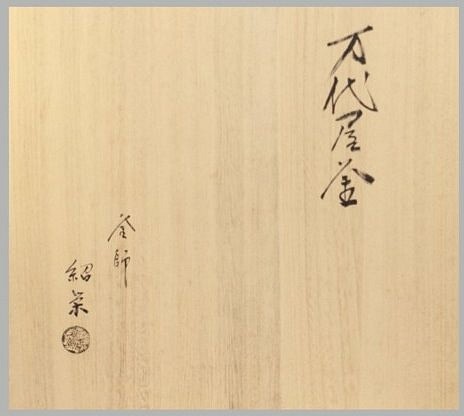 万代屋釜
釜師
紹栄